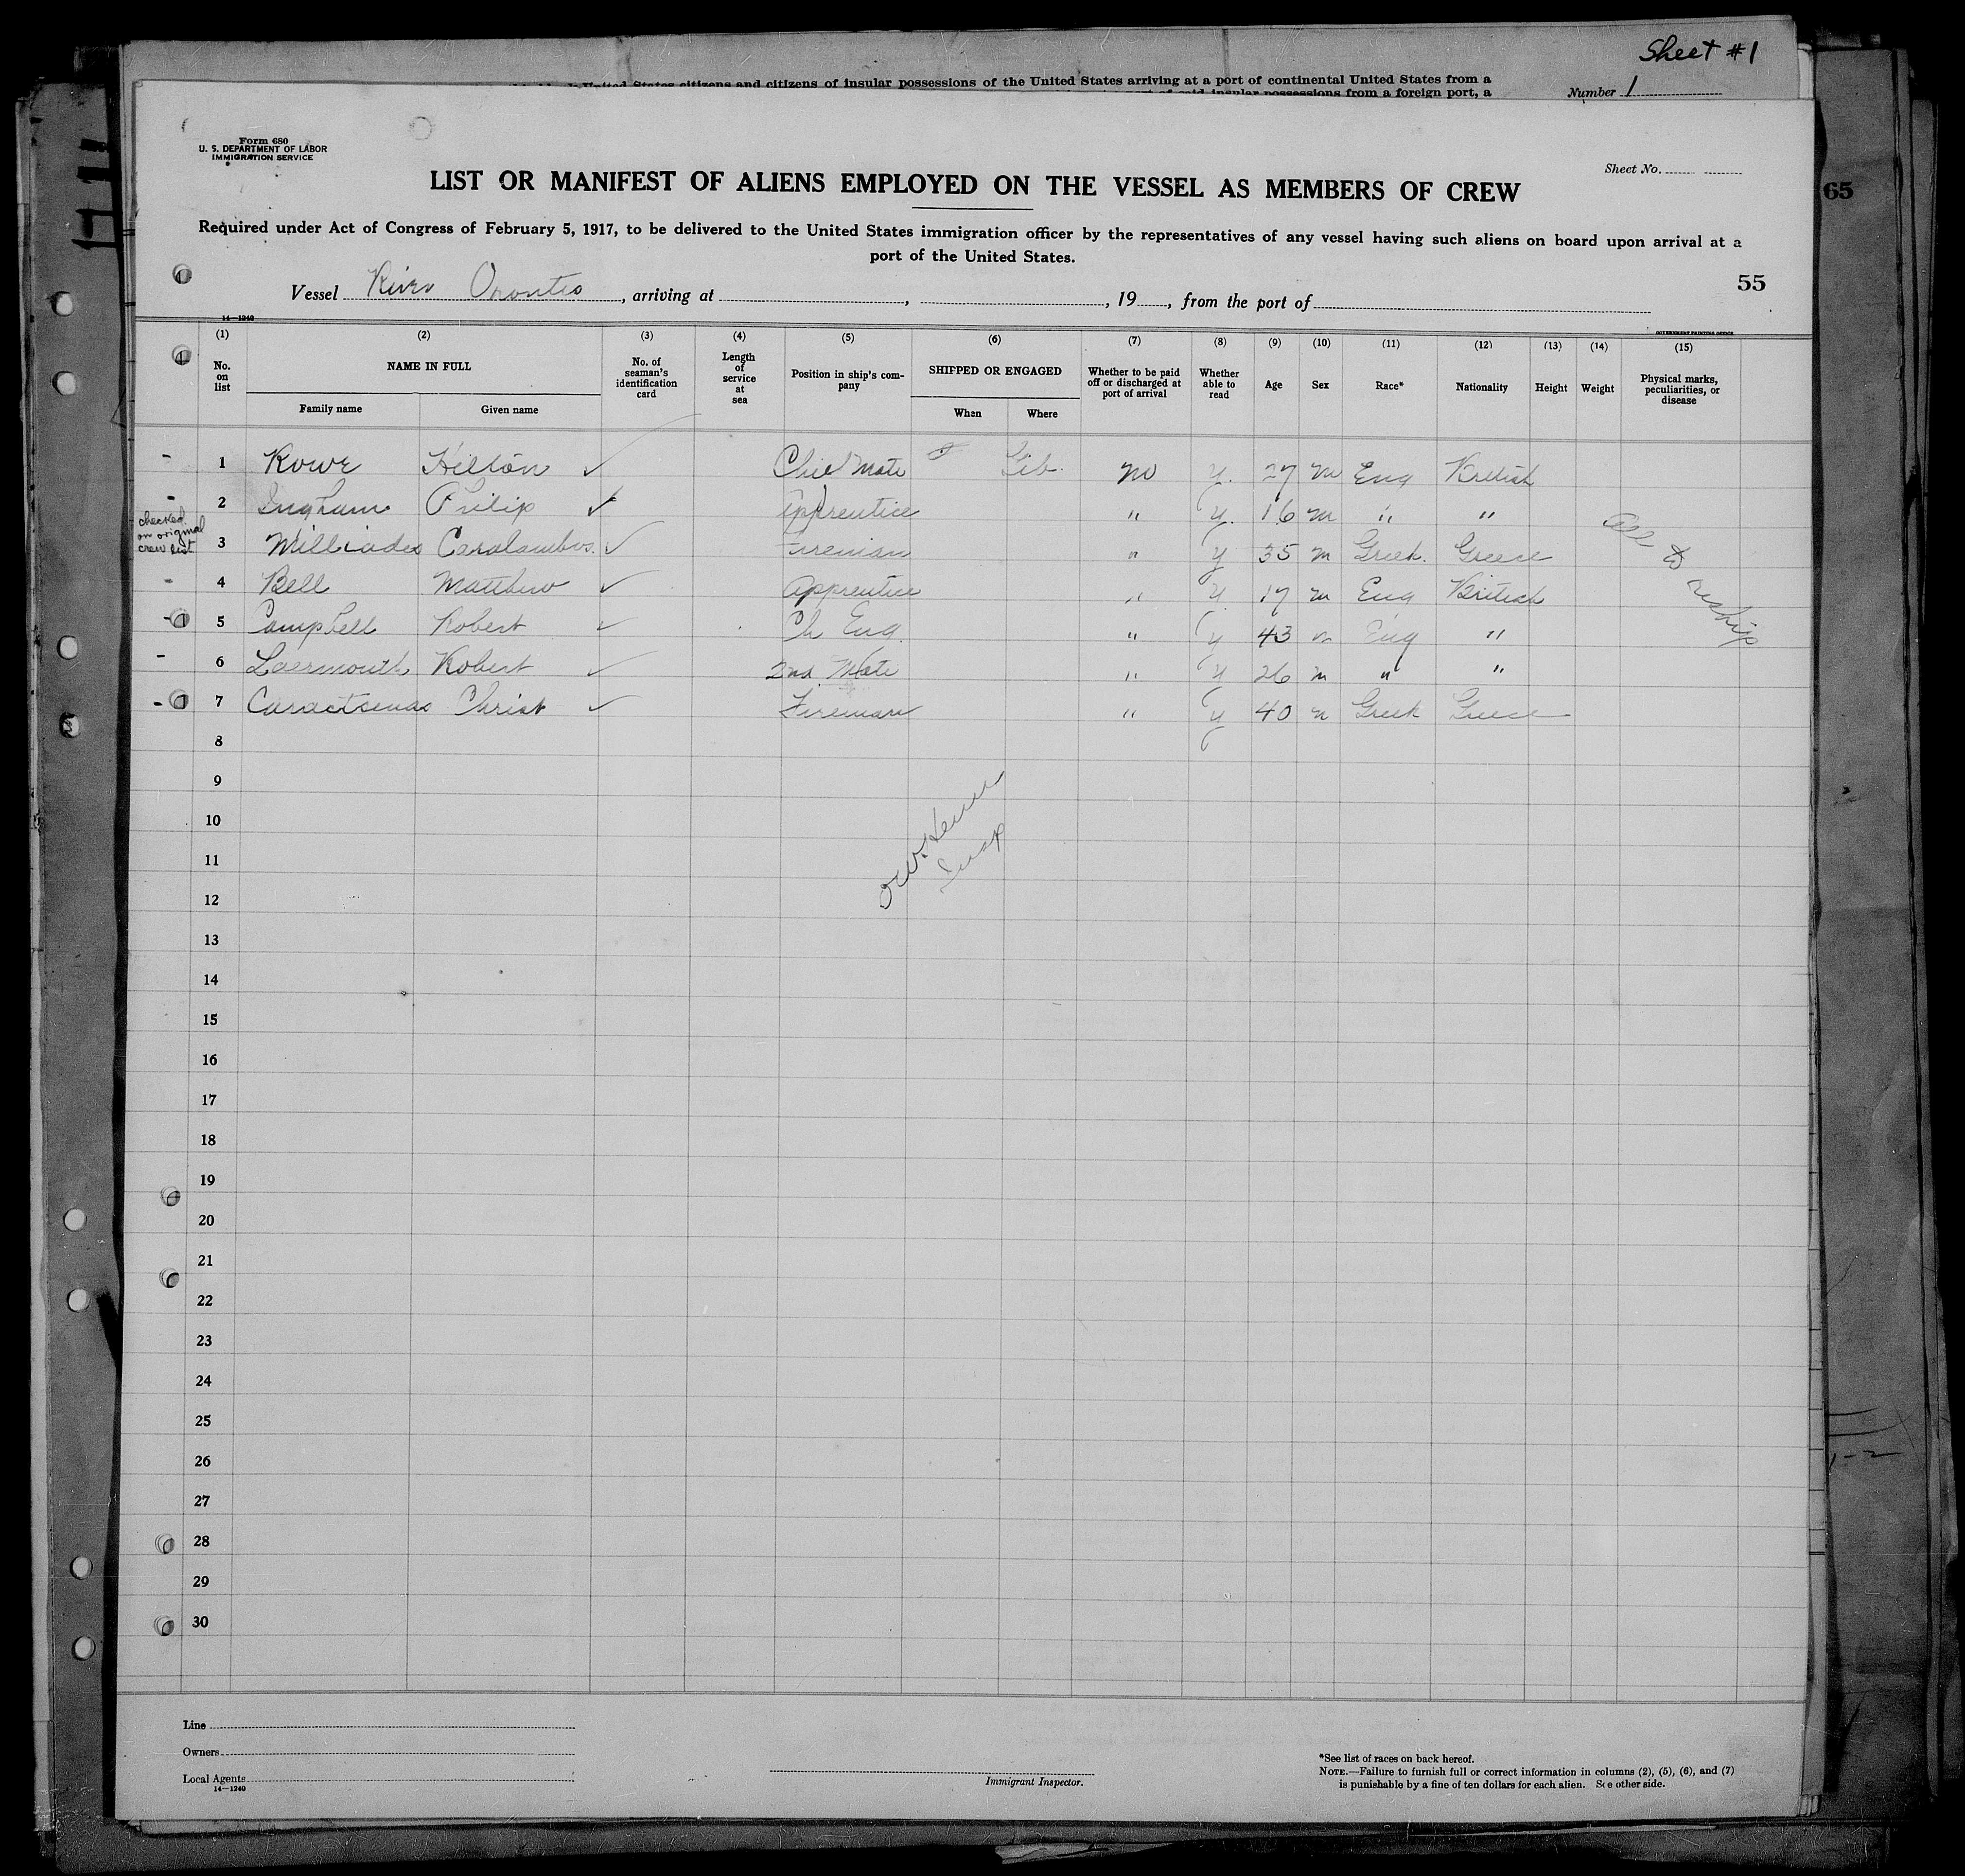 Sheet #1
United States citizens and citizens of insular possessions of the United States arriving at a port of continental United States from a
port of said insular possessions from a foreign port, a
Number 1
Form 680
U. S. DEPARTMENT OF LABOR
IMMIGRATION SERVICE
Sheet No.
LIST OR MANIFEST OF ALIENS EMPLOYED ON THE VESSEL AS MEMBERS OF CREW
65
Required under Act of Congress of February 5, 1917, to be delivered to the United States immigration officer by the representatives of any vessel having such aliens on board upon arrival at a
port of the United States.
55
Vessel River Orontes, arriving at , , 19 , from the port of
14—1240
GOVERNMENT PRINTING OFFICE
(1) (2) (3) (4) (5) (6) (7) (8) (9) (10) (11) (12) (13) (14) (15)
No. on list NAME IN FULL No. of seaman's identification card Length of service at sea Position in ship's company SHIPPED OR ENGAGED Whether to be paid off or discharged at port of arrival Whether able to read Age Sex Race* Nationality Height Weight Physical marks, peculiarities, or disease
Family name Given name When Where
- 1 Rowe Hilton ✓ Chief Mate Gib. no y. 27 m Eng British
- 2 Ingham Philip ✓ Apprentice " y. 16 m " "
checked on original crew list
3 Milliades Caralambos. ✓ Fireman " y 35 m Greek. Greece
- 4 Bell Matthew ✓ Apprentice " y 17 m Eng British
- 5 Campbell Robert ✓ Ch Eng. " y 43 m Eng "
- 6 Learmouth Robert ✓ 2nd. Mate " y 26 m " "
- 7 Caractsenas Christ ✓ Fireman " y 40 m Greek Greece
All to reship
8
9
10
Insp
11
12
13
14
15
16
17
18
19
20
21
22
23
24
25
26
27
28
29
30
Line
Owners
Local Agents
14—1240
Immigrant Inspector.
*See list of races on back hereof.
NOTE.—Failure to furnish full or correct information in columns (2), (5), (6), and (7)
is punishable by a fine of ten dollars for each alien. See other side.